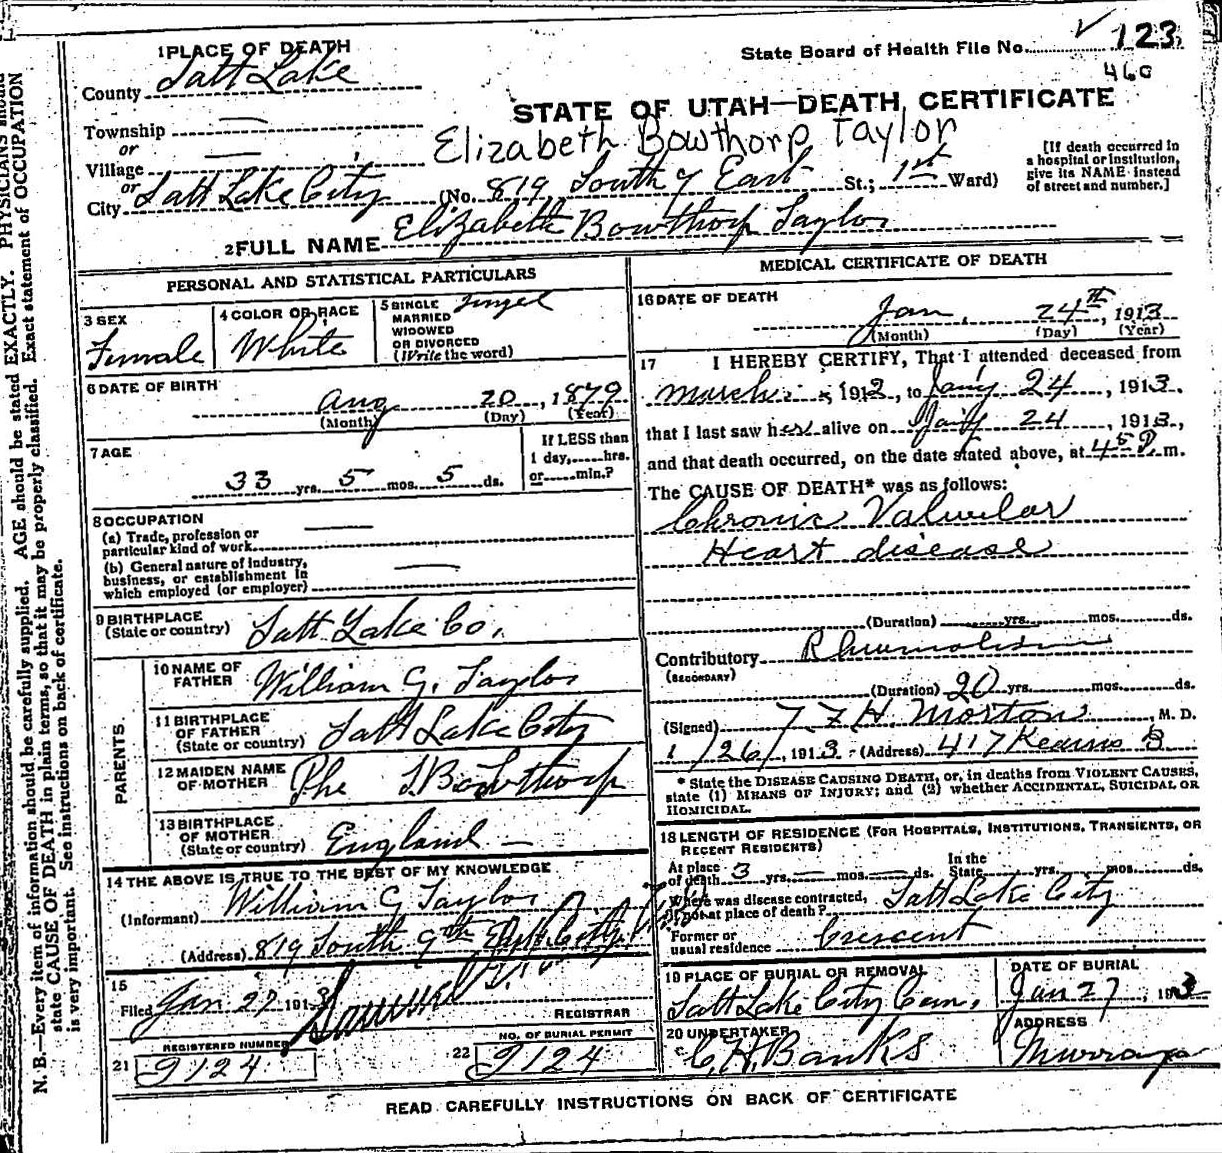 State Board of Health File No. 123
460
1 PLACE OF DEATH
County Salt Lake
STATE OF UTAH—DEATH CERTIFICATE
Township —
or
Village —
Elizabeth Bowthorp Taylor
or
City Salt Lake City (No. 819 South 9 East St.; 1st Ward)
[If death occurred in
a hospital or institution,
give its NAME instead
of street and number.]
2 FULL NAME Elizabeth Bowthorp Taylor
PERSONAL AND STATISTICAL PARTICULARS
3 SEX
Female
4 COLOR OR RACE
White
5 SINGLE
MARRIED
WIDOWED
OR DIVORCED
(Write the word)
6 DATE OF BIRTH
Aug 20, 1879
(Month) (Day) (Year)
7 AGE
33 yrs. 5 mos. 5 ds.
If LESS than
1 day,......hrs.
or......min.?
8 OCCUPATION
(a) Trade, profession or
particular kind of work —
(b) General nature of industry,
business, or establishment in
which employed (or employer) —
9 BIRTHPLACE
(State or country) Salt Lake Co.
PARENTS
10 NAME OF
FATHER William G. Taylor
11 BIRTHPLACE
OF FATHER
(State or country) Salt Lake City
12 MAIDEN NAME
OF MOTHER Bowthorp
13 BIRTHPLACE
OF MOTHER
(State or country) England —
14 THE ABOVE IS TRUE TO THE BEST OF MY KNOWLEDGE
(Informant) William G Taylor
(Address) 819 South 9th East City
15
Filed Jan 27 1913
REGISTRAR
REGISTERED NUMBER
21 9124
NO. OF BURIAL PERMIT
22 9124
MEDICAL CERTIFICATE OF DEATH
16 DATE OF DEATH
Jan. 24th, 1913
(Month) (Day) (Year)
17 I HEREBY CERTIFY, That I attended deceased from
March 1912, to Jany 24, 1913.
that I last saw her alive on Jany 24, 1913,
and that death occurred, on the date stated above, at 4 45 P. m.
The CAUSE OF DEATH* was as follows:
Chronic Valvular
Heart disease
(Duration) yrs. mos. ds.
Contributory Rheumatism
(SECONDARY)
(Duration) 20 yrs. mos. ds.
(Signed) H. Morton, M. D.
1/26/, 1913 (Address) 417 Kearns B
* State the DISEASE CAUSING DEATH, or, in deaths from VIOLENT CAUSES,
state (1) MEANS OF INJURY; and (2) whether ACCIDENTAL, SUICIDAL OR
HOMICIDAL.
18 LENGTH OF RESIDENCE (FOR HOSPITALS, INSTITUTIONS, TRANSIENTS, OR
RECENT RESIDENTS)
At place
of death 3 yrs. — mos. — ds.
In the
State yrs. mos. ds.
Where was disease contracted,
if not at place of death? Salt Lake City
Former or
usual residence Crescent
19 PLACE OF BURIAL OR REMOVAL
Salt Lake City Cem.
DATE OF BURIAL
Jan 27, 1913
20 UNDERTAKER
C. H. Banks
ADDRESS
Murray
READ CAREFULLY INSTRUCTIONS ON BACK OF CERTIFICATE
N. B.—Every item of information should be carefully supplied. AGE should be stated EXACTLY. PHYSICIANS should
state CAUSE OF DEATH in plain terms, so that it may be properly classified. Exact statement of OCCUPATION
is very important. See instructions on back of certificate.